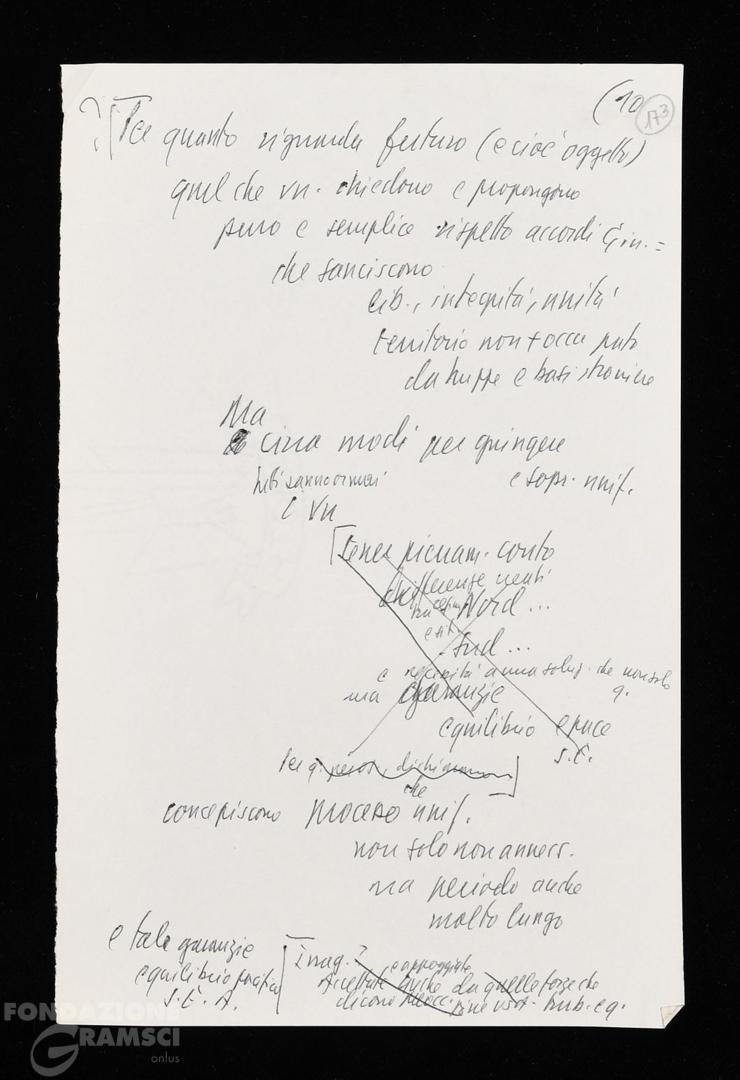 (10
173
?
Per quanto riguarda futuro (e cioè oggetto)
quel che vn. chiedono e propongono
puro e semplice rispetto accordi Gin. =
che sanciscono
lib., integrità, unità
territorio non toccato
da truppe e basi straniere
Ma
circa modi per giungere
tutti sanno ormai e sopr. unif.
i Vn
tener pienam. conto
differenze
Nord ...
e sit.
Sud ...
e necessità a una soluz. che non solo
ma garanzie q.
equilibrio e pace
S.E.
Per q.
che
concepiscono processo unif.
non solo non anness.
ma periodo anche
molto lungo
e tale garanzie
equilibrio pacifico
S.E.A.
Imag. ?
e appoggiate
Accettate anche da quelle forze che
dicono